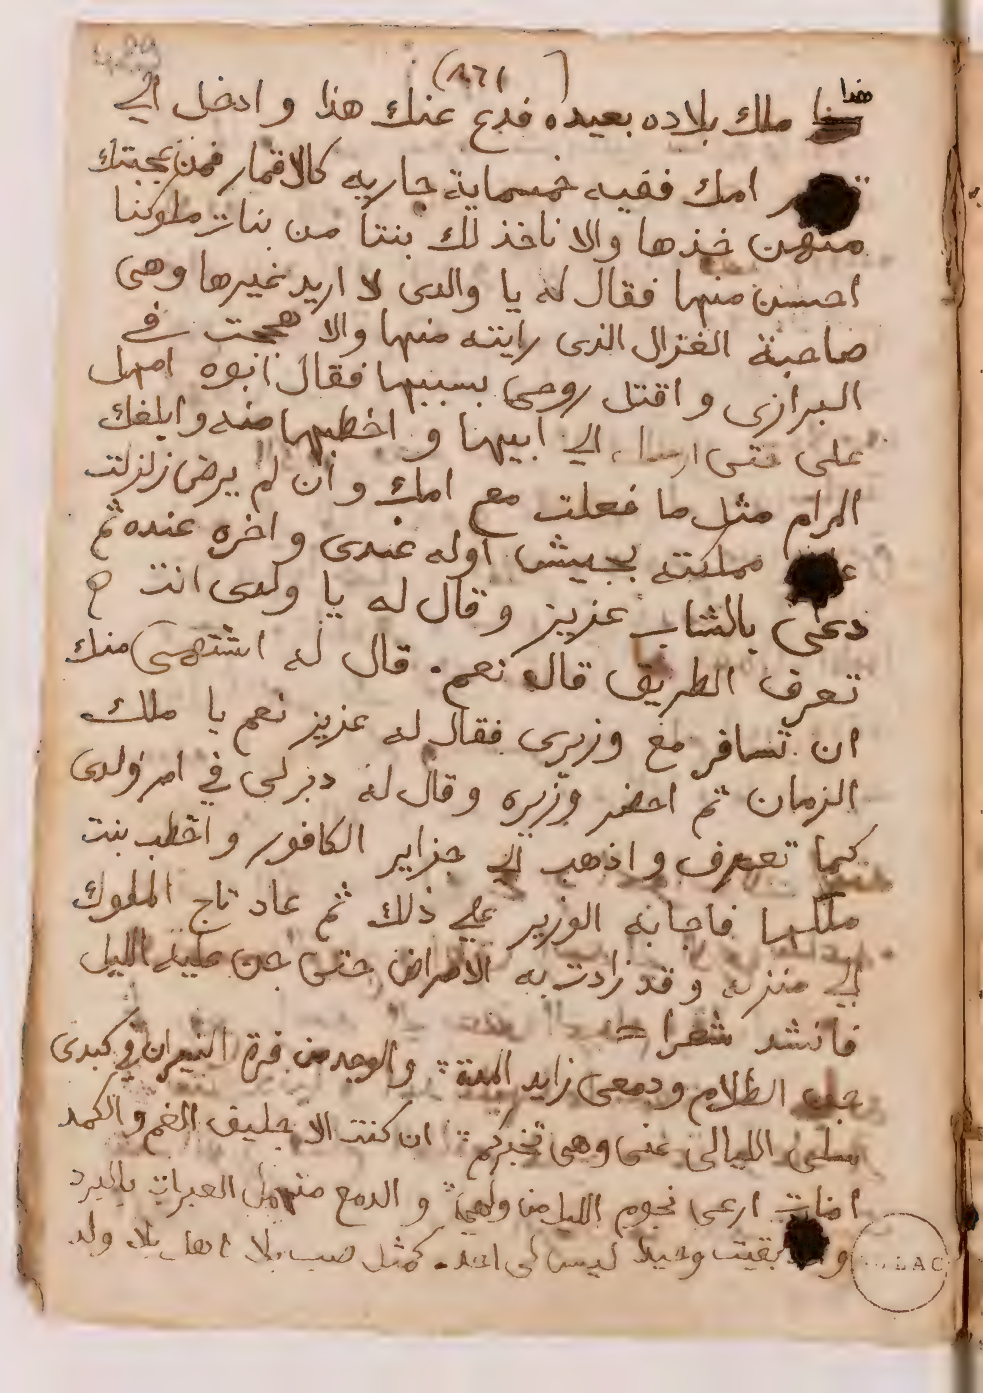 429
(١٢٦١)
هذا
ملك بلاده بعيده فدع عنك هذا وادخل الي
امك ففيه خمسماية جاريه كالاقمار فمن عجبتك
منهن خذها والا ناخذ لك بنتا من بنات ملوكنا
احسن منها فقال له يا والدى لا اريد غيرها وهى
صاحبة الغزال الذى رايته منها والا هججت في
البرازى واقتل روحى بسببها فقال ابوه امهل
على حتى ارسل الي ابيها و اخطبها منه وابلغك
المرام مثل ما فعلت مع امك وان لم يرض زلزلت
مملكته بجيش اوله عندى واخره عنده ثم
دعى بالشاب عزيز وقال له يا ولدى انت
تعرف الطريق قال نعم. قال له اشتهى منك
ان تسافر مع وزيرى فقال له عزيز نعم يا ملك
الزمان ثم احضر وزيره وقال له دبرلى في امر ولدى
كما تعرف واذهب الي جزاير الكافور واخطب بنت
ملكها فاجابه الوزير علي ذلك ثم عاد تاج الملوك
الي منزله وقد زادت به الامراض حتى جن عليه الليل
فانشد شعرا
جن الظلام ودمعى زايد المدد والوجد من فرة النيران في كبدى
سلى الليالى عنى وهى تخبركم ان كنت الا حليف الغم والكمد
ارعى نجوم الليل من ولهى و الدمع منهمل العبرات بالبرد
و بقيت وحيدا ليس لى احد. كمثل صب بلا اهل بلا ولد
LAC